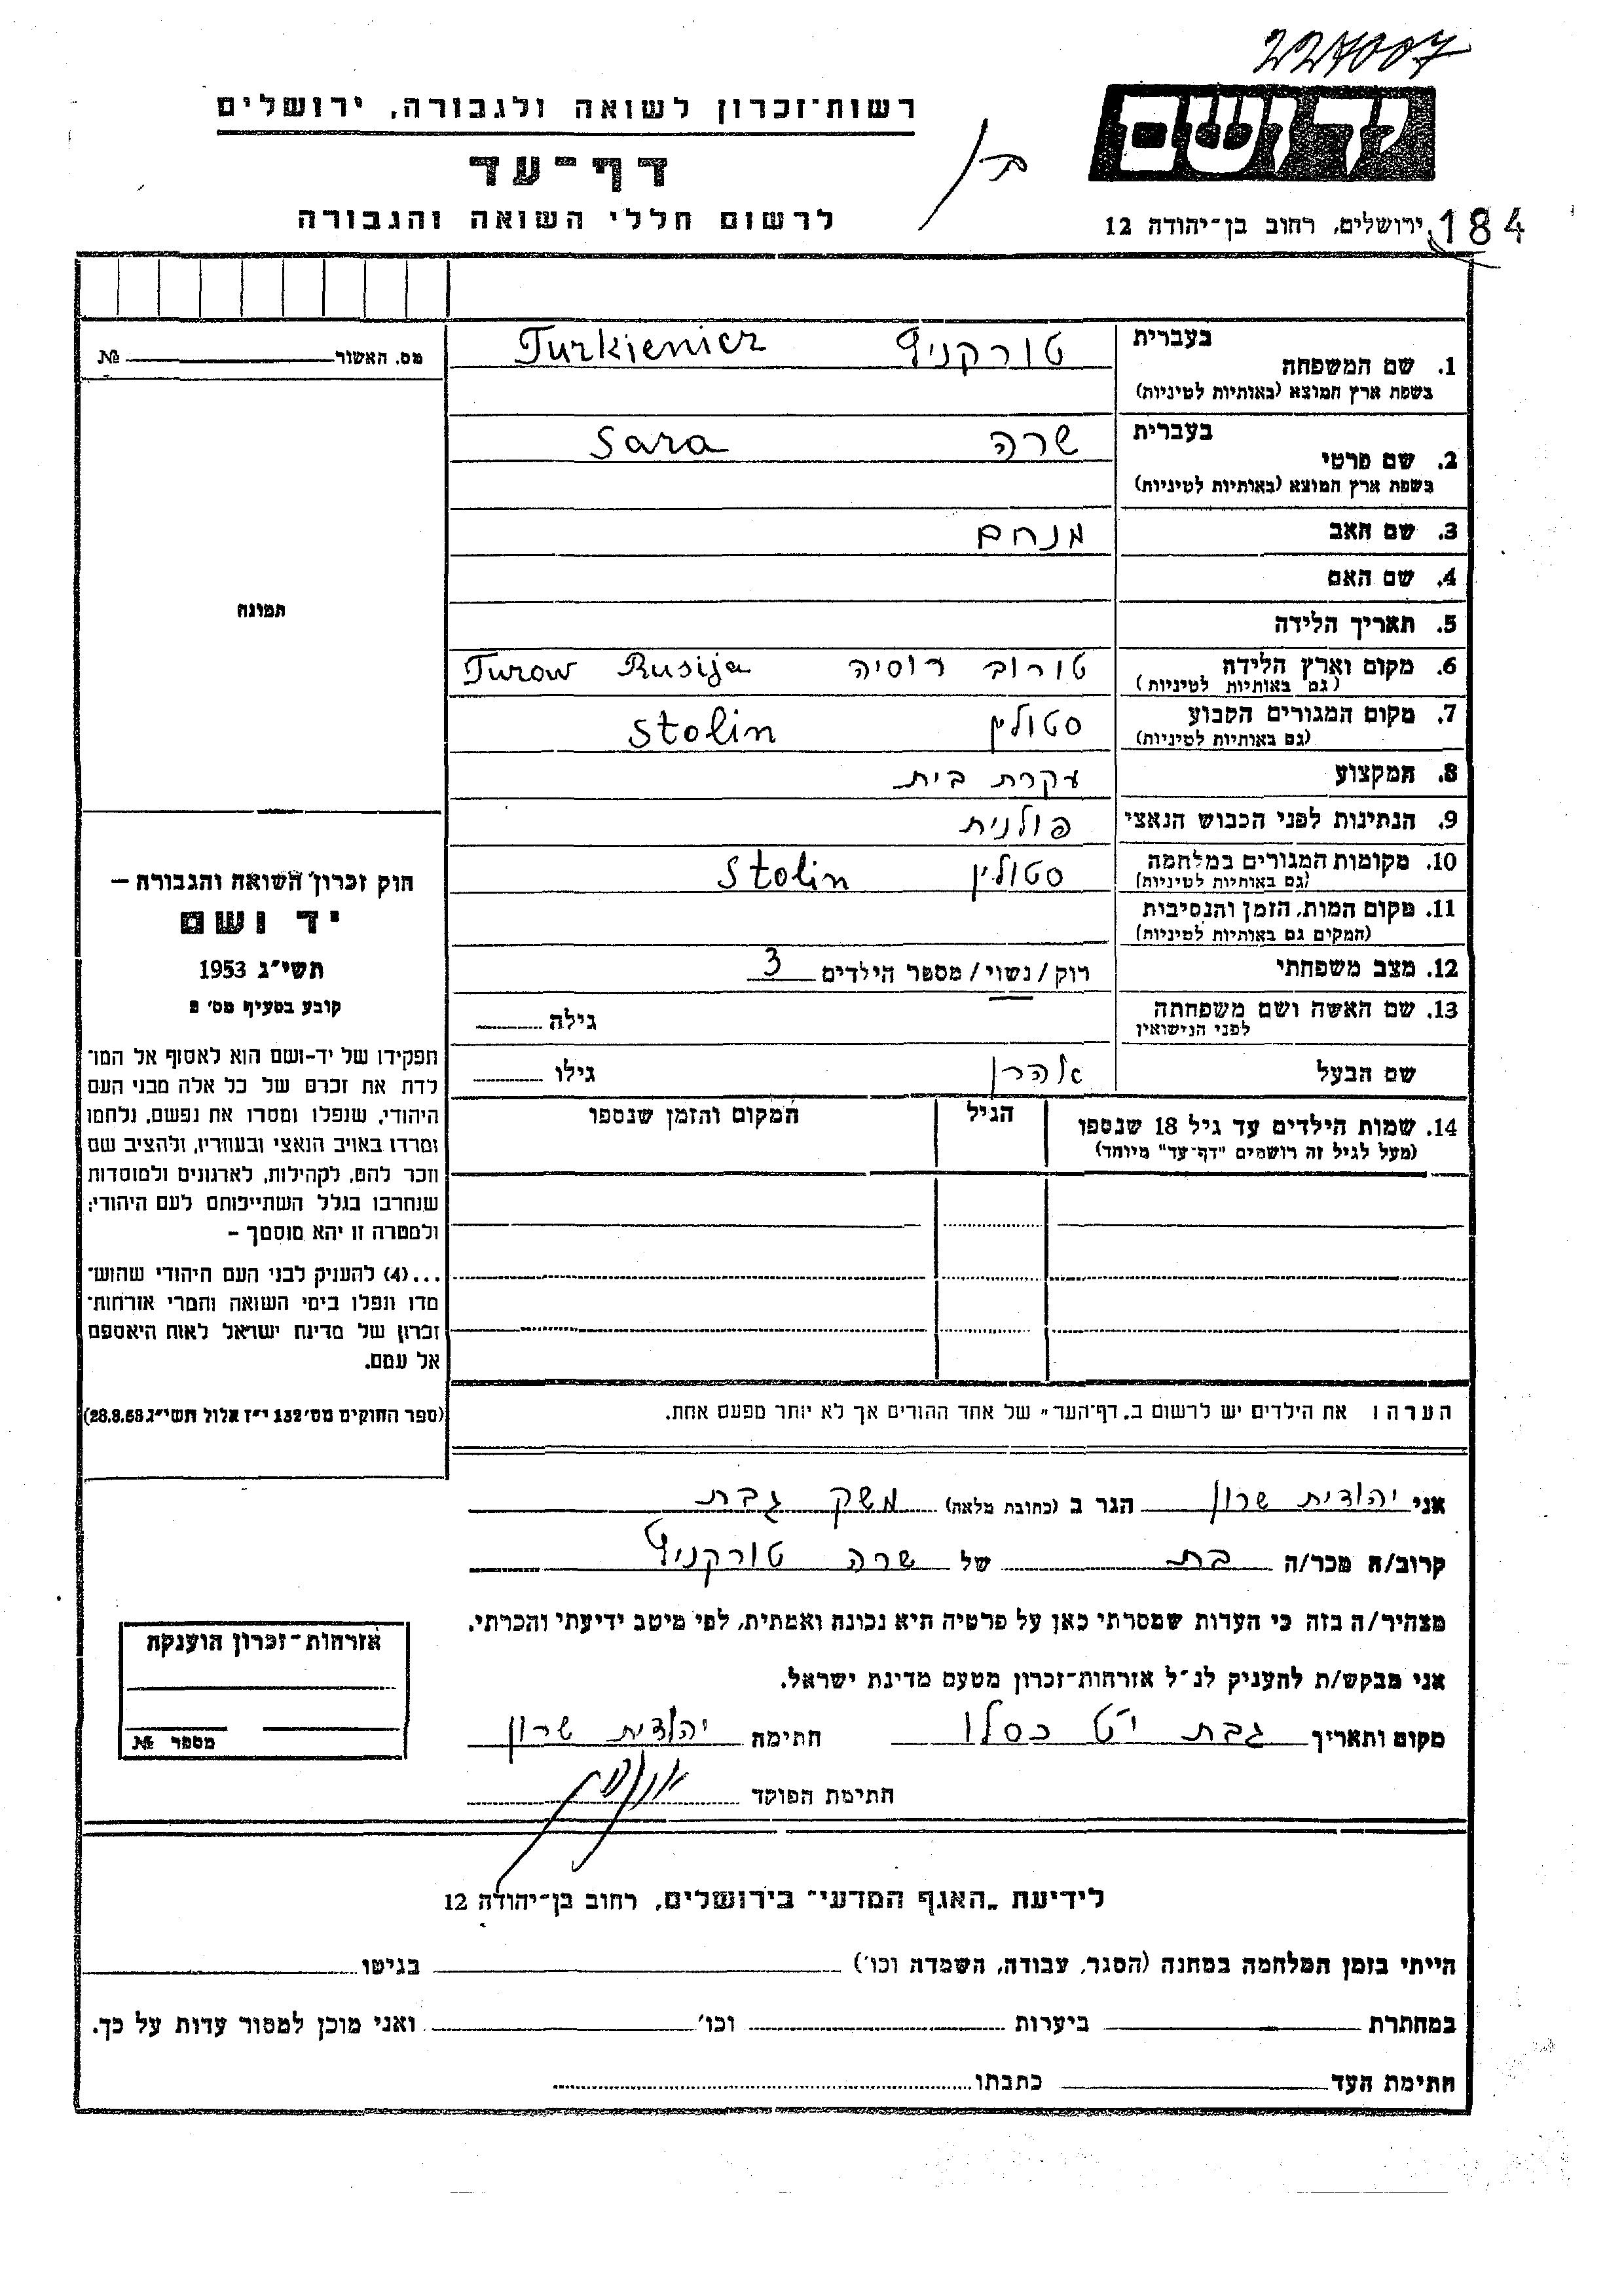 227007
יד ושם
רשות־זכרון לשואה ולגבורה, ירושלים
דף־עד
לרשום חללי השואה והגבורה
ירושלים, רחוב בן־יהודה 12
184
בעברית
1. שם המשפחה טורקניץ Turkienicz
בשפת ארץ המוצא (באותיות לטיניות)
בעברית
2. שם פרטי שרה Sara
בשפת ארץ המוצא (באותיות לטיניות)
3. שם האב מנחם
4. שם האם
5. תאריך הלידה
6. מקום וארץ הלידה טורוב רוסיה Turow Rusija
(גם באותיות לטיניות)
7. מקום המגורים הקבוע סטולין Stolin
(גם באותיות לטיניות)
8. המקצוע עקרת בית
9. הנתינות לפני הכבוש הנאצי פולנית
10. מקומות המגורים במלחמה סטולין Stolin
(גם באותיות לטיניות)
11. מקום המות, הזמן והנסיבות
(המקום גם באותיות לטיניות)
12. מצב משפחתי רוק/נשוי/ מספר הילדים 3
13. שם האשה ושם משפחתה גילה
לפני הנישואין
שם הבעל אהרן גילו
14. שמות הילדים עד גיל 18 שנספו הגיל המקום והזמן שנספו
(מעל לגיל זה רושמים "דף־עד" מיוחד)
הערה: את הילדים יש לרשום ב„דף־העד" של אחד ההורים אך לא יותר מפעם אחת.
מס. האשור №
תמונה
חוק זכרון השואה והגבורה —
יד ושם
תשי"ג 1953
קובע בסעיף מס' 2
תפקידו של יד־ושם הוא לאסוף אל המו־
לדת את זכרם של כל אלה מבני העם
היהודי, שנפלו ומסרו את נפשם, נלחמו
ומרדו באויב הנאצי ובעוזריו, ולהציב שם
וזכר להם, לקהילות, לארגונים ולמוסדות
שנחרבו בגלל השתייכותם לעם היהודי;
ולמטרה זו יהא מוסמך –
...(4) להעניק לבני העם היהודי שהוש־
מדו ונפלו בימי השואה והמרי אזרחות־
זכרון של מדינת ישראל לאות היאספם
אל עמם.
(ספר החוקים מס' 132 י"ז אלול תשי"ג 28.8.53)
אני יהודית שרון הגר ב (כתובת מלאה) משק גבת
קרוב/ה מכר/ה בת של שרה טורקניץ
מצהיר/ה בזה כי העדות שמסרתי כאן על פרטיה היא נכונה ואמתית, לפי מיטב ידיעתי והכרתי.
אני מבקש/ת להעניק לנ"ל אזרחות־זכרון מטעם מדינת ישראל.
מקום ותאריך גבת י"ט כסלו חתימה יהודית שרון
חתימת הפוקד
אזרחות־זכרון הוענקה
מספר №
לידיעת „האגף המדעי" בירושלים, רחוב בן־יהודה 12
הייתי בזמן המלחמה במחנה (הסגר, עבודה, השמדה וכו') בגיטו
במחתרת ביערות וכו' ואני מוכן למסור עדות על כך.
חתימת העד כתבתו